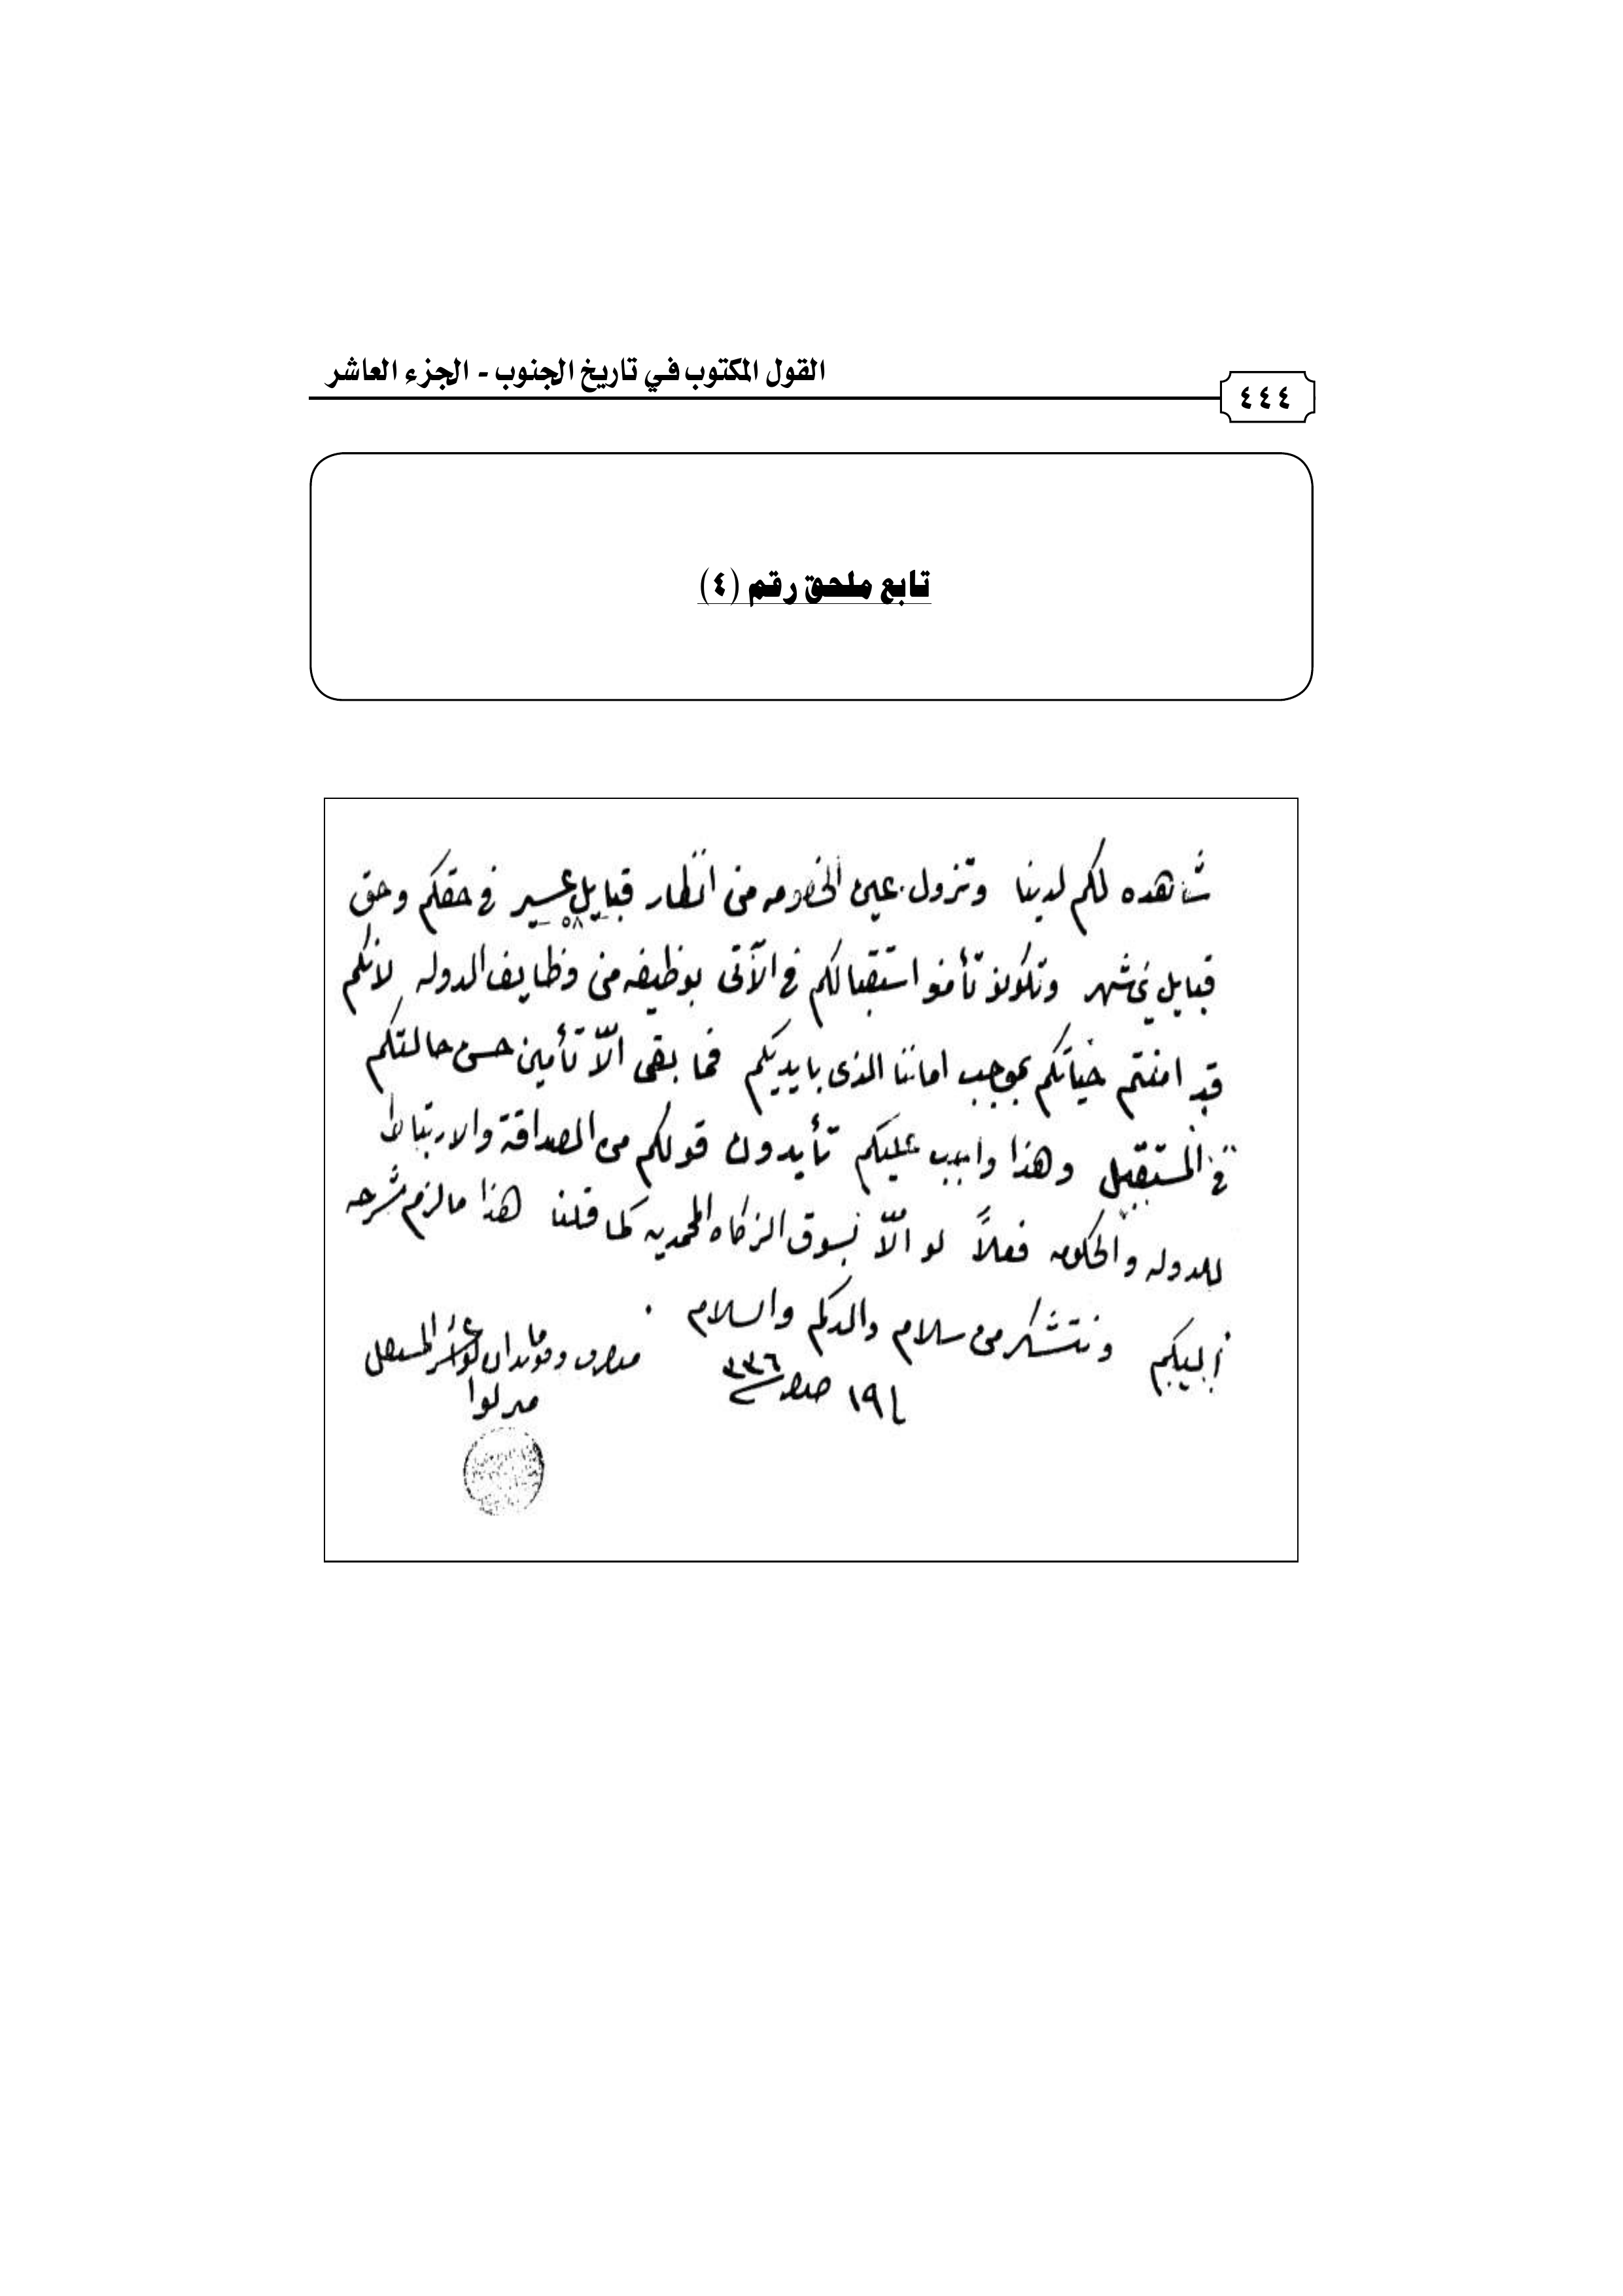 القول المكتوب في تاريخ الجنوب - الجزء العاشر
٤٤٤
تابع ملحق رقم (٤)
شاهده لكم لدينا وتزول عين الخصومه من انظار قبايل عسير في حقكم وحق
قبايل بني شهر وتكونو تأمنو استقبالكم في الآتى بوظيفه من وظايف الدوله لانكم
قد امنتم حياتكم بموجب اماننا الذى بايديكم فما بقى الّا تأمين حسن حالتكم
في المستقبل وهذا واجب عليكم تأيدون قولكم من الصداقة والارتباط
للدوله والحكومه فعلاً لو الّا بسوق الزكاه المحمديه كما قلنا هذا ما لزم شرحه
اليكم ونتشكر من سلام والدكم والسلام
١٩ صفر ٣٣٦
متصرف وقومندان
مير لوا